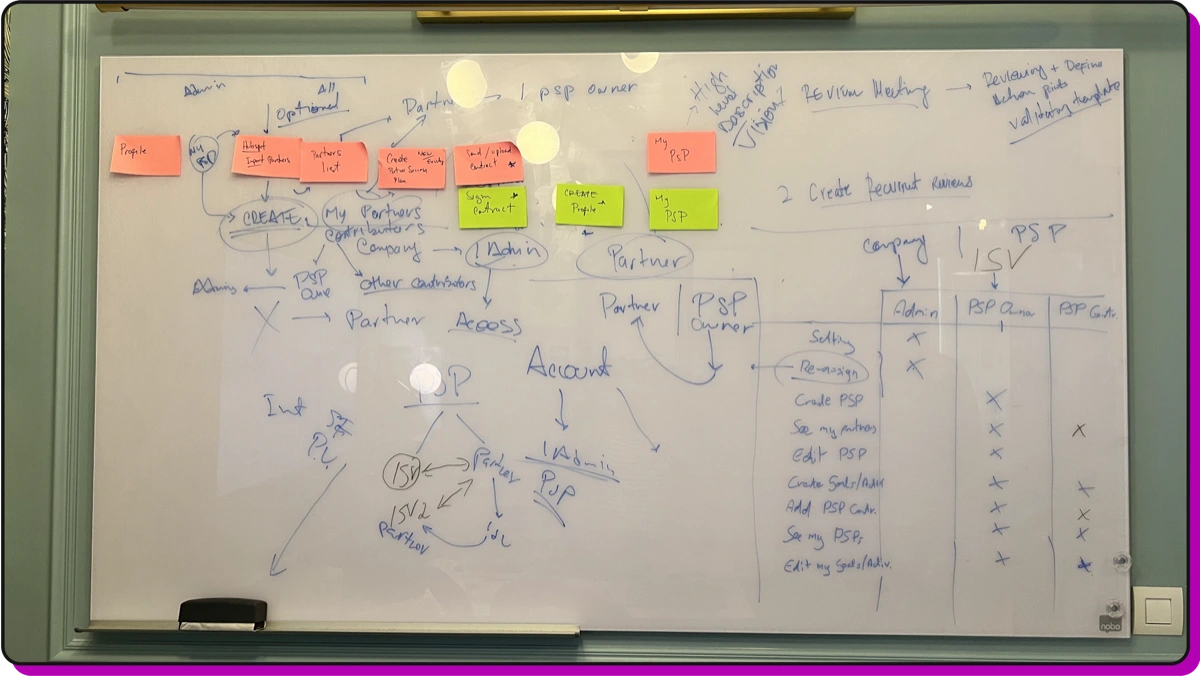 Admin
All
Optional
Partner → 1 PSP owner
High
level
Description
Vision?
REVIEW Meeting → Reviewing + Define
Action points
Validating template
Profile
My
PSP
Hubspot
Import Partners
Partners
List
Create New
Plan
Send / upload
contract
My
PSP
Sign
Contract
CREATE
Profile
My
PSP
2 Create Recurrent Reviews
CREATE
My Partners
Contributors
Company → 1 Admin
Partner
Company | PSP
ISV
Admin ← PSP
Other contributors
X → Partner Access
Partner | PSP
owner
Admin
PSP Owner
PSP Contr.
Setting X
Re-assign X
Create PSP X
See my partners X X
Edit PSP X
Create Goals/Activ X X
Add PSP Contr. X X
See my PSPs X X
Edit my Goals/Activ. X X
Account
1 Admin
PSP
PSP
ISV
Partner
ISV2
Partner
Int
nobo